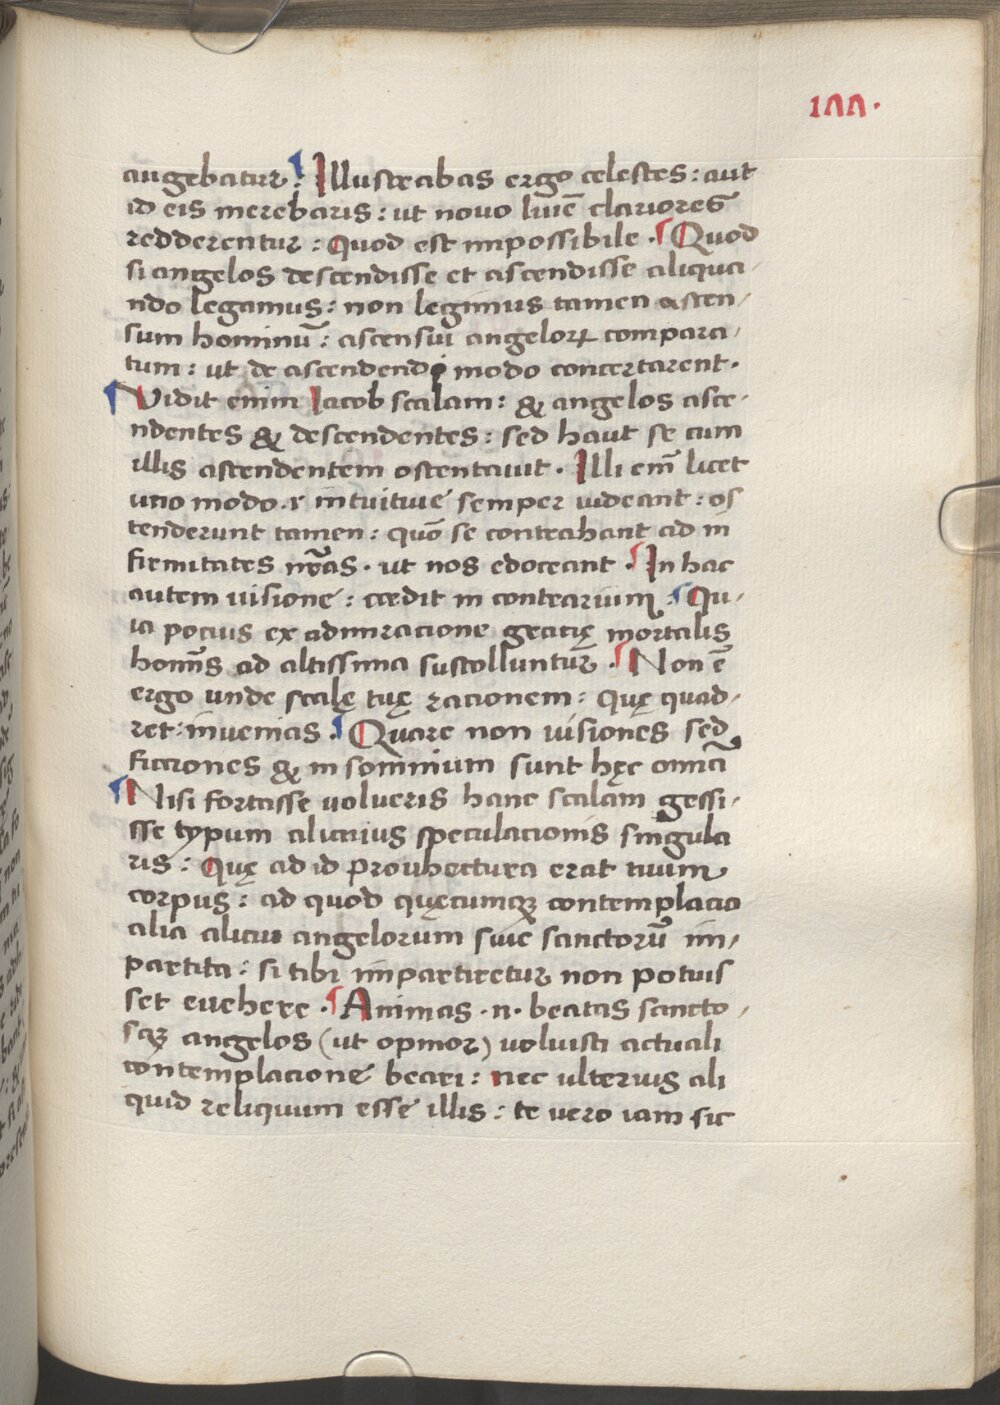 1ΛΛ.
augebatur: Illustrabas ergo celestes: aut
id eis merebaris: ut nouo lum̄e clariores
redderentur: Quod est impossibile. Quod
si angelos descendisse et ascendisse aliqua-
ndo legamus: non legimus tamen ascen-
sum hominū: ascensui angelorꝝ compara-
tum: ut de ascendendo modo concertarent.
Vidit enim Iacob scalam: & angelos asce-
ndentes & descendentes: sed haut se cum
illis ascendentem ostentauit. Illi em̄ licet
uno modo .i. intuitiue semper uideant: os
tenderunt tamen: quō se contrahant ad in
firmitates nr̄as. ut nos edoceant. In hac
autem uisione: cedit in contrarium: Qu-
ia pocius ex admiracione gracię mortalis
homīs ad altissima sustolluntur. Non ē
ergo unde scalę tuę racionem: Quę quad-
ret: inuenias. Quare non uisiones sed
ficciones & in somnium sunt hęc omīa
Nisi fortasse uolueris hanc scalam gessi-
sse typum alicuius speculacionis singula
ris: Quę ad id prouhectura erat tuum
corpus: ad quod quęcumqꝫ contemplacio
alia alicui angelorum siue sanctorū im-
partita: si tibi impartiretur non potuis
set euehere. Animas .n. beatas sancto-
sqꝫ angelos (ut opinor) uoluisti actuali
contemplacione beari: nec ulterius ali
quid reliquum esse illis: te uero iam sic